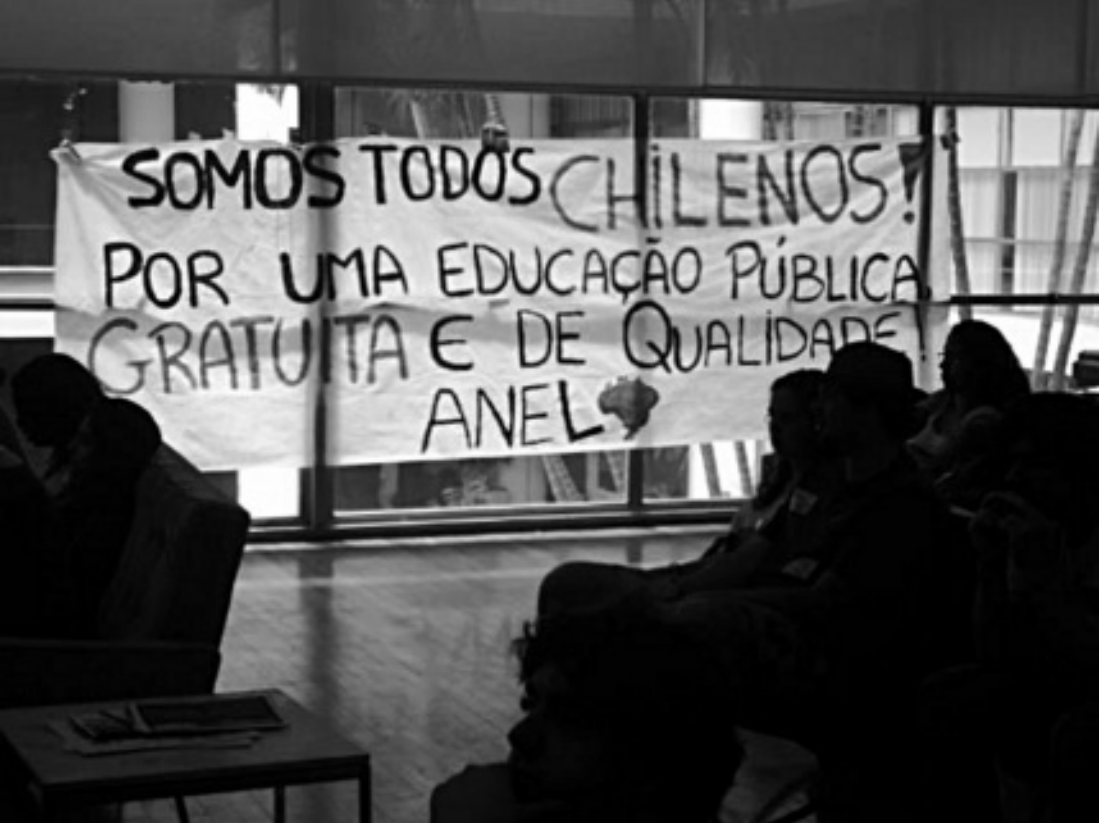 SOMOS TODOS CHILENOS!
POR UMA EDUCAÇÃO PÚBLICA,
GRATUITA E DE QUALIDADE!
ANEL